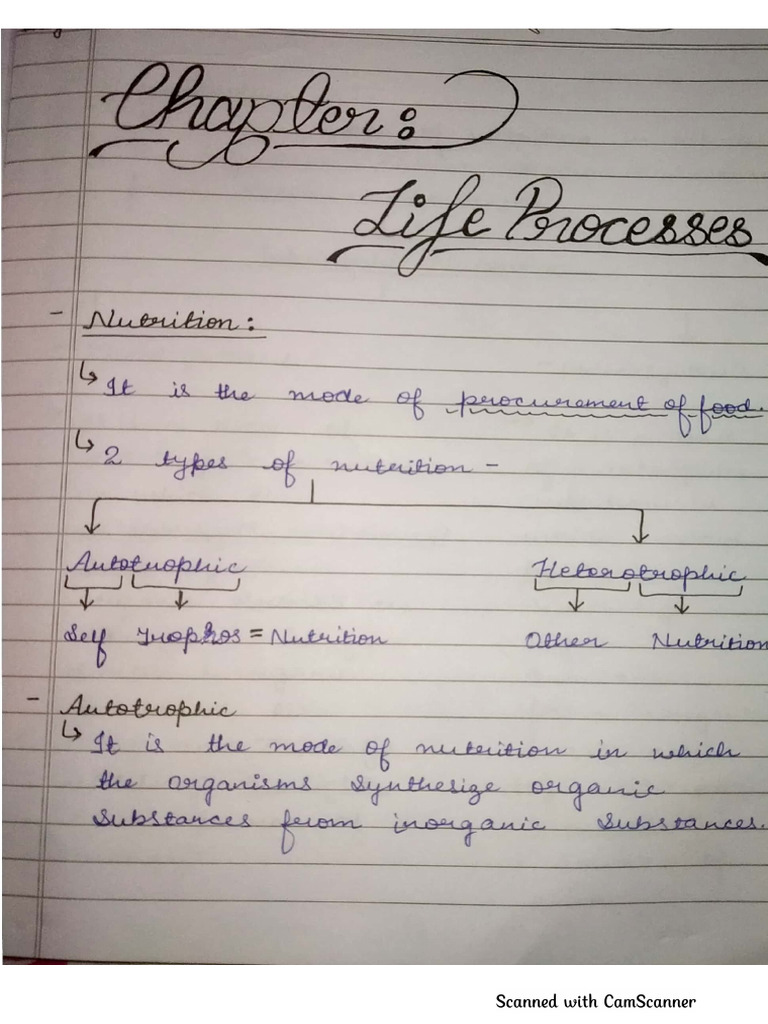 Chapter:
Life Processes
- Nutrition:
↳ It is the mode of procurement of food.
↳ 2 types of nutrition -
Autotrophic Heterotrophic
Self Trophos = Nutrition Other Nutrition
- Autotrophic
↳ It is the mode of nutrition in which
the organisms synthesize organic
substances from inorganic substances.
Scanned with CamScanner